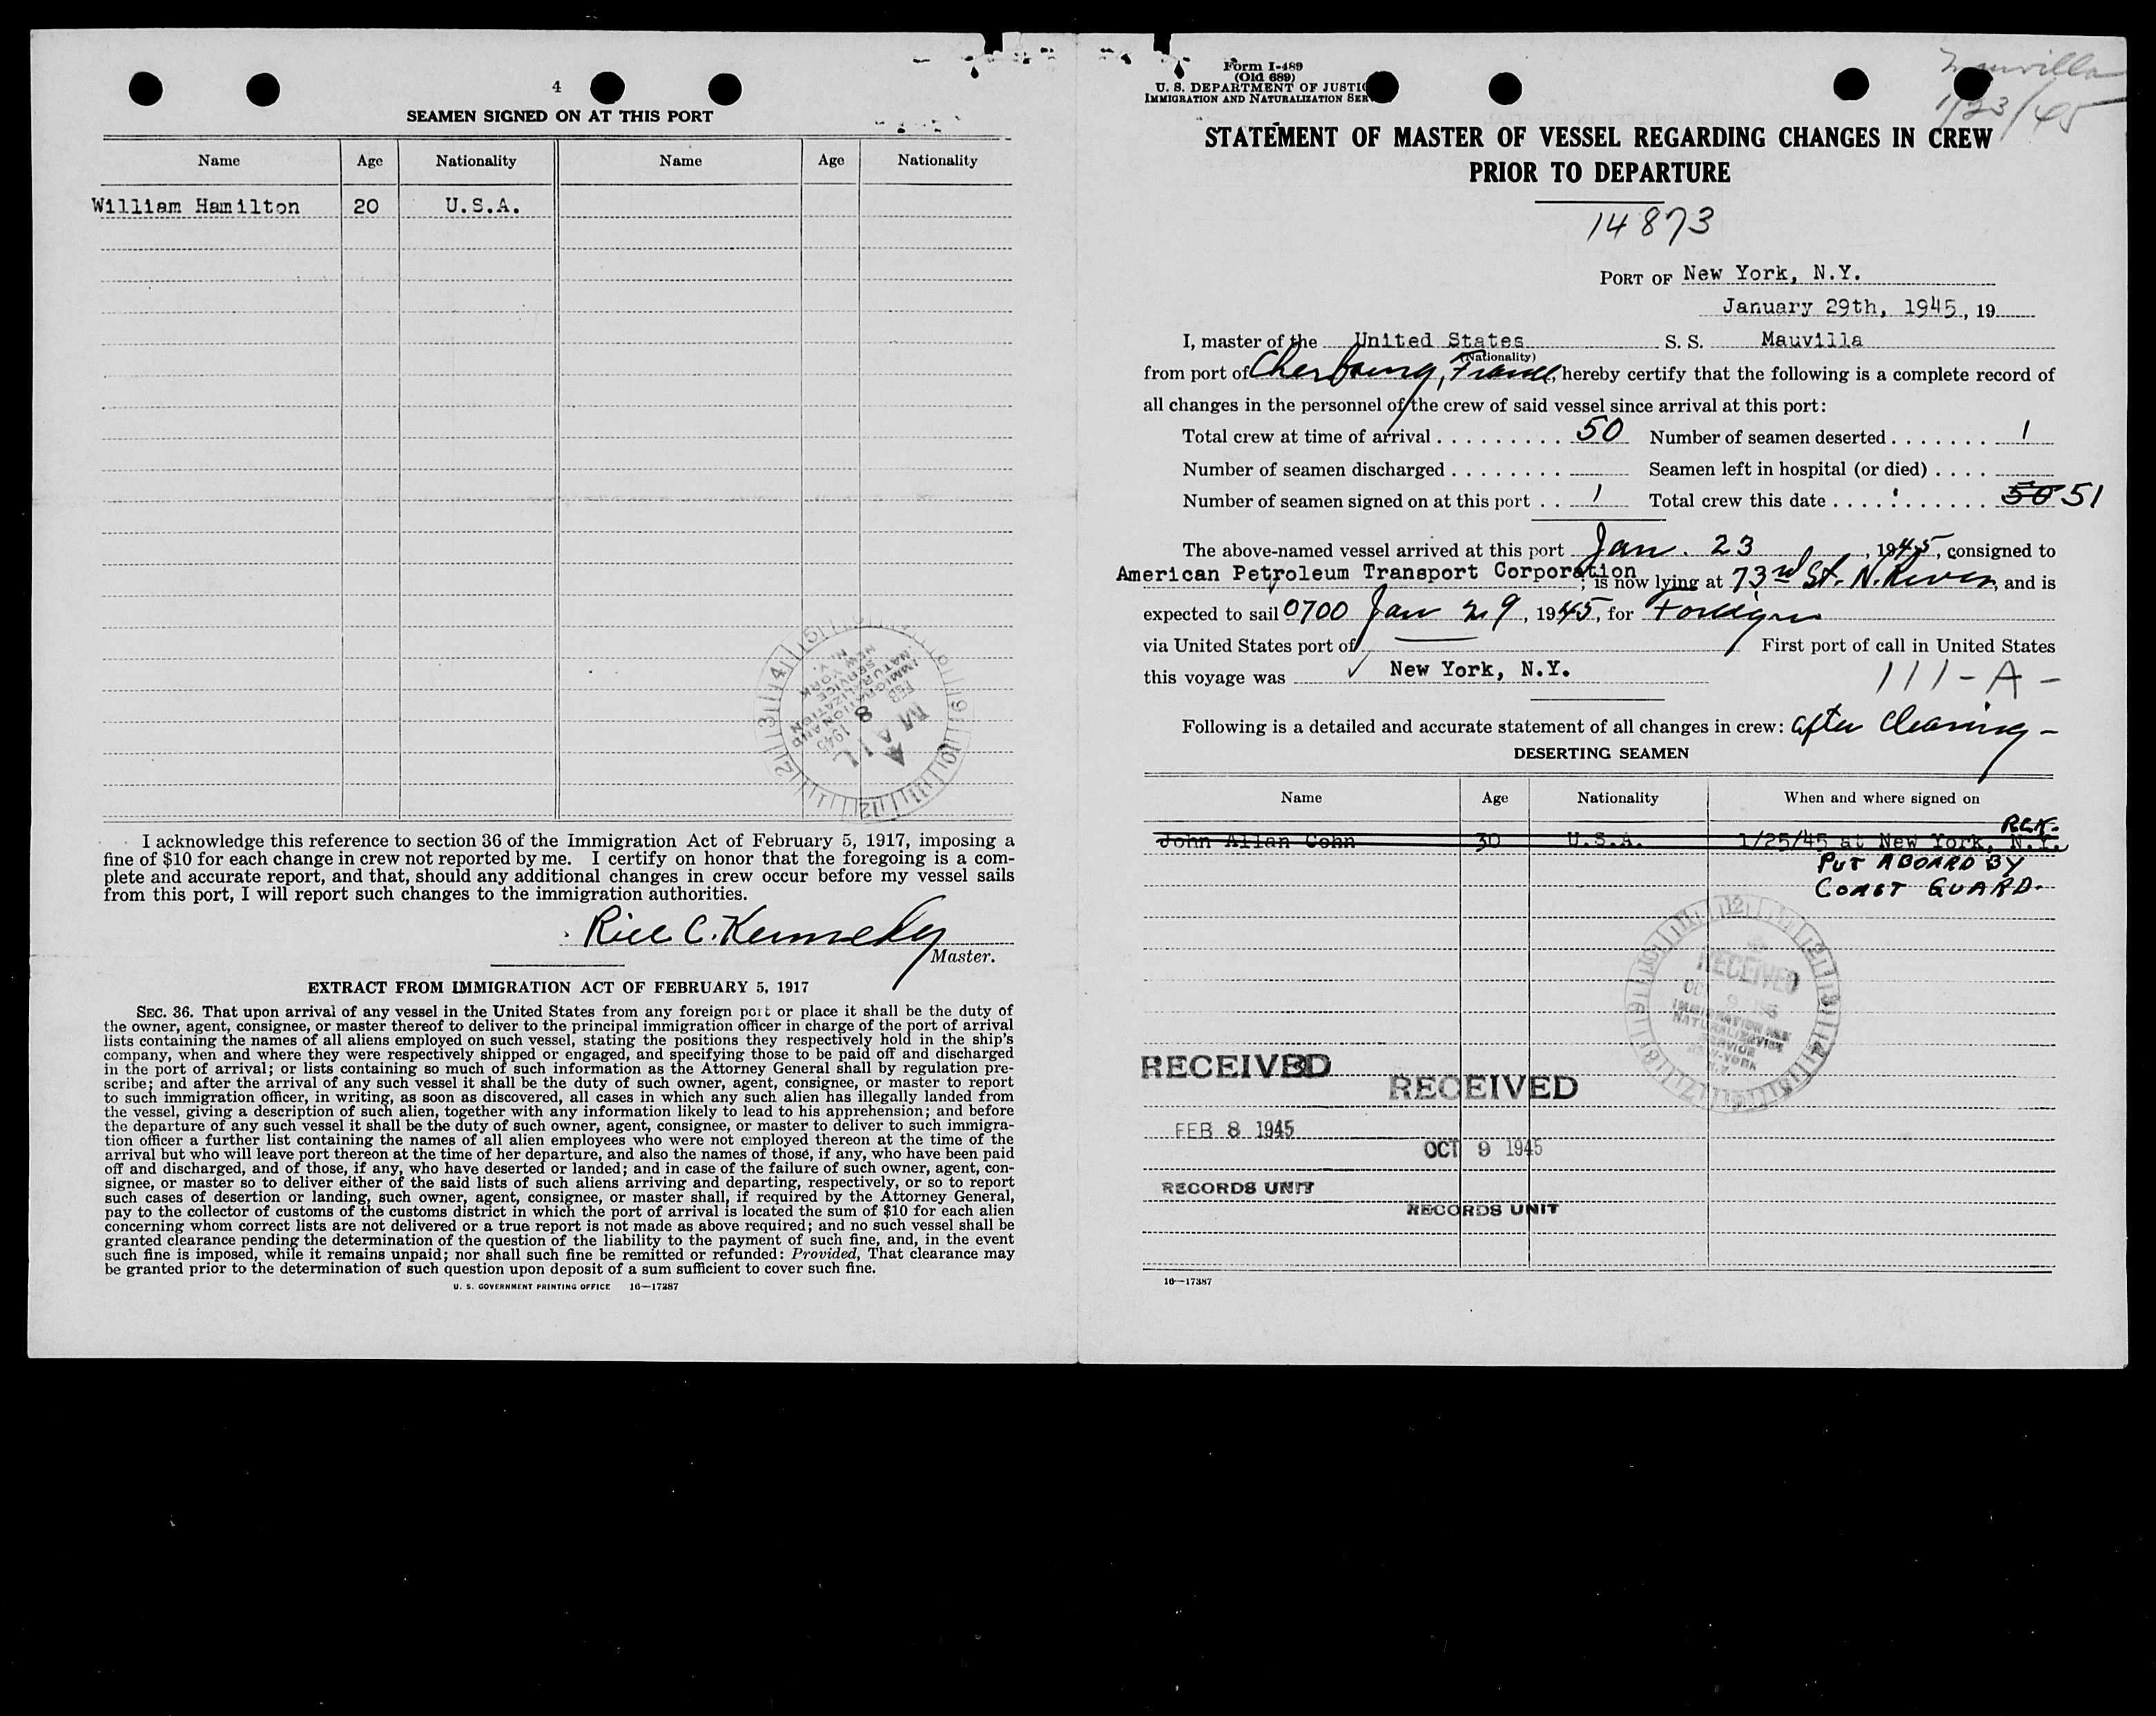 4
SEAMEN SIGNED ON AT THIS PORT
Name Age Nationality Name Age Nationality
William Hamilton 20 U.S.A.
I acknowledge this reference to section 36 of the Immigration Act of February 5, 1917, imposing a
fine of $10 for each change in crew not reported by me. I certify on honor that the foregoing is a com-
plete and accurate report, and that, should any additional changes in crew occur before my vessel sails
from this port, I will report such changes to the immigration authorities.
Rice C. Kennedy
Master.
EXTRACT FROM IMMIGRATION ACT OF FEBRUARY 5, 1917
SEC. 36. That upon arrival of any vessel in the United States from any foreign port or place it shall be the duty of
the owner, agent, consignee, or master thereof to deliver to the principal immigration officer in charge of the port of arrival
lists containing the names of all aliens employed on such vessel, stating the positions they respectively hold in the ship's
company, when and where they were respectively shipped or engaged, and specifying those to be paid off and discharged
in the port of arrival; or lists containing so much of such information as the Attorney General shall by regulation pre-
scribe; and after the arrival of any such vessel it shall be the duty of such owner, agent, consignee, or master to report
to such immigration officer, in writing, as soon as discovered, all cases in which any such alien has illegally landed from
the vessel, giving a description of such alien, together with any information likely to lead to his apprehension; and before
the departure of any such vessel it shall be the duty of such owner, agent, consignee, or master to deliver to such immigra-
tion officer a further list containing the names of all alien employees who were not employed thereon at the time of the
arrival but who will leave port thereon at the time of her departure, and also the names of those, if any, who have been paid
off and discharged, and of those, if any, who have deserted or landed; and in case of the failure of such owner, agent, con-
signee, or master so to deliver either of the said lists of such aliens arriving and departing, respectively, or so to report
such cases of desertion or landing, such owner, agent, consignee, or master shall, if required by the Attorney General,
pay to the collector of customs of the customs district in which the port of arrival is located the sum of $10 for each alien
concerning whom correct lists are not delivered or a true report is not made as above required; and no such vessel shall be
granted clearance pending the determination of the question of the liability to the payment of such fine, and, in the event
such fine is imposed, while it remains unpaid; nor shall such fine be remitted or refunded: Provided, That clearance may
be granted prior to the determination of such question upon deposit of a sum sufficient to cover such fine.
U. S. GOVERNMENT PRINTING OFFICE 16—17387
MAIL
FEB 8 1945
IMMIGRATION AND
NATURALIZATION
SERVICE
NEW YORK
N. Y.
Form I-489
(Old 689)
U. S. DEPARTMENT OF JUSTIC
IMMIGRATION AND NATURALIZATION SER
Mauvilla
1/23/45
STATEMENT OF MASTER OF VESSEL REGARDING CHANGES IN CREW
PRIOR TO DEPARTURE
14873
PORT OF New York, N.Y.
January 29th, 1945, 19
I, master of the United States S. S. Mauvilla
(Nationality)
from port of Cherbourg, France, hereby certify that the following is a complete record of
all changes in the personnel of the crew of said vessel since arrival at this port:
Total crew at time of arrival . . . . . . . . . . 50 Number of seamen deserted . . . . . . . 1
Number of seamen discharged . . . . . . . . Seamen left in hospital (or died) . . . .
Number of seamen signed on at this port . . 1 Total crew this date . . . . . . . . . . . . 50 51
The above-named vessel arrived at this port Jan. 23, 1945, consigned to
American Petroleum Transport Corporation; is now lying at 73rd St. N. River, and is
expected to sail 0700 Jan 29, 1945, for Foreign
via United States port of First port of call in United States
this voyage was New York, N.Y.
111-A-
Following is a detailed and accurate statement of all changes in crew: after clearing -
DESERTING SEAMEN
Name Age Nationality When and where signed on
RCK.
John Allan Cohn 30 U.S.A. 1/25/45 at New York, N.Y.
PUT ABOARD BY
COAST GUARD.
RECEIVED
IMMIGRATION AND
NATURALIZATION
SERVICE
NEW YORK
N.Y.
RECEIVED
FEB 8 1945
RECORDS UNIT
RECEIVED
OCT 9 1945
RECORDS UNIT
16—17387